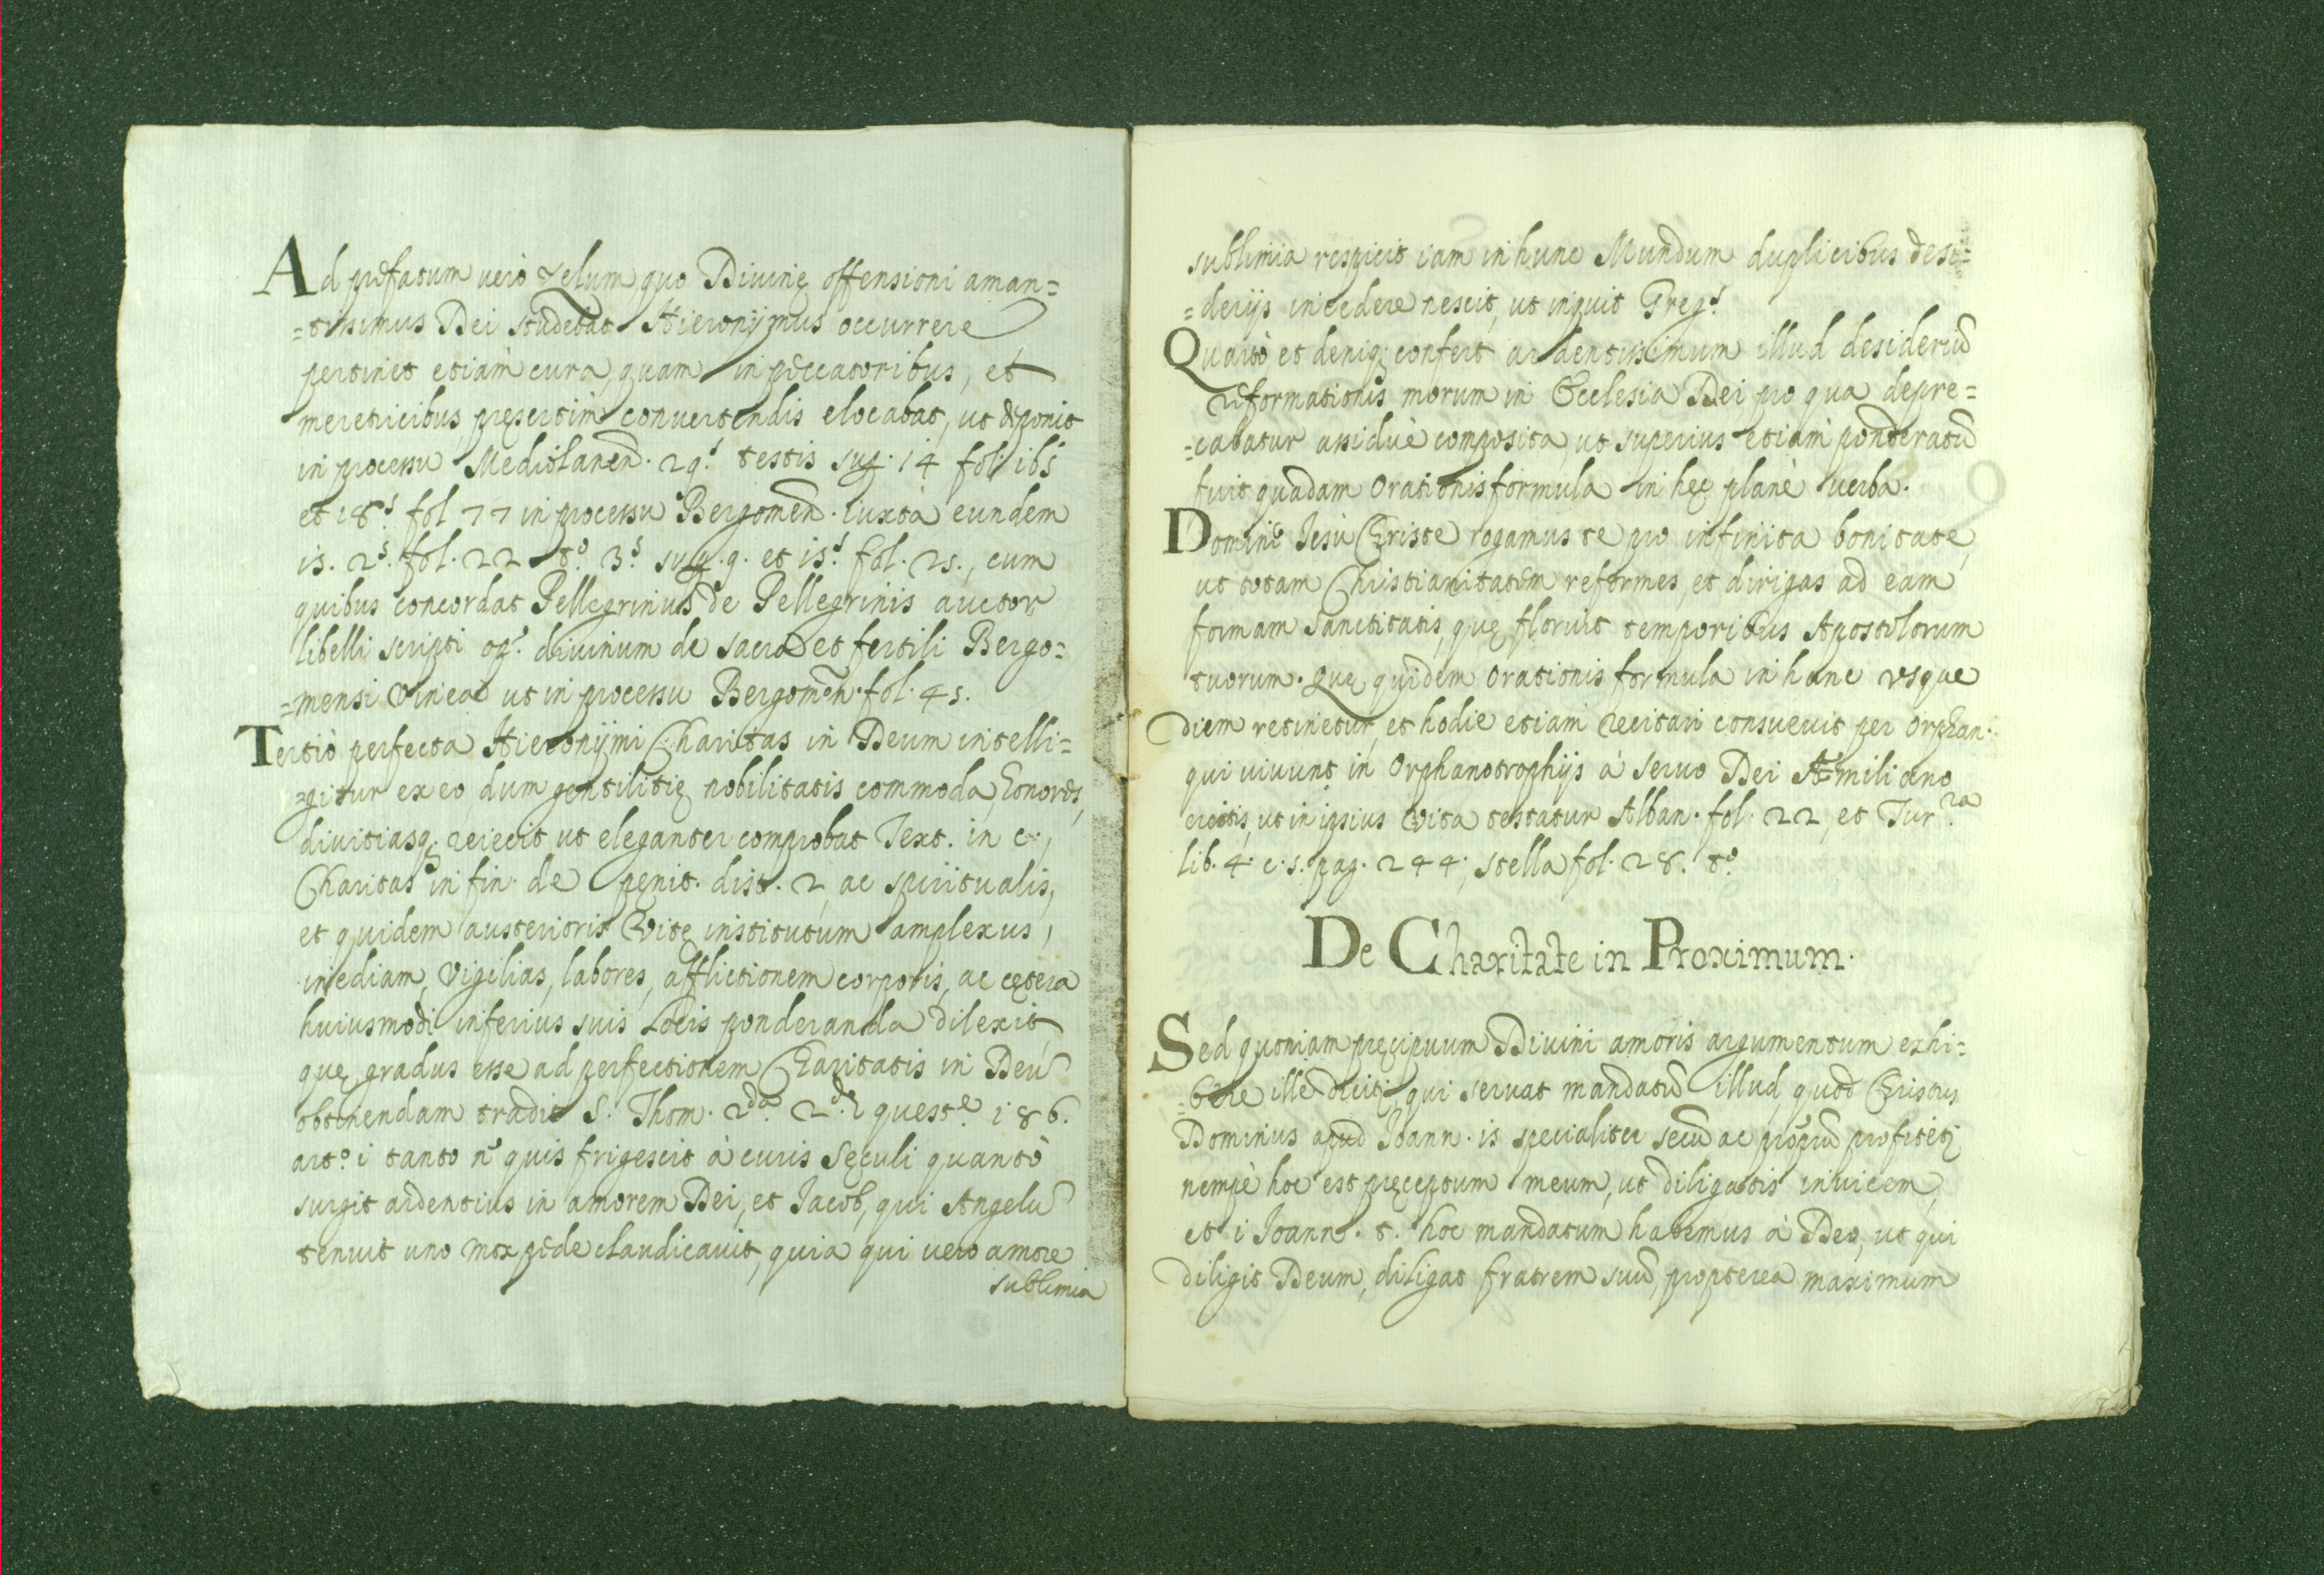 Ad prefatum verò zelum quo Divinę offensioni aman=
=tissimus Dei studebat Hieronymus occurrere
pertinet etiam cura, quam in peccatoribus, et
meretricibus, pręsertim convertendis elocabat, ut deponit
in processu Mediolanen. 29.s testis sup. 14 fol. 165
et 18.s fol 77 in processu Bergomen. iuxta eundem
15. 2.s fol. 22 to. 3.s sup. 9. et 15.s fol. 25., cum
quibus concordat Pellegrinus de Pellegrinis auctor
libelli scripti op.s divinum de sacra et fertili Bergo=
=mensi Vinea ut in processu Bergomen. fol. 45.
Tertiò perfecta Hieronymi Charitas in Deum intelli=
=gitur ex eo dum gentilitię nobilitatis commoda, honores,
divitiasq; reiecit ut eleganter comprobat Text. in c.,
Charitas in fin. de pęnit. dist. 2, ac spiritualis,
et quidem austerioris Vitę institutum amplexus,
inediam, Vigilias, labores, afflictionem corporis, ac cętera
huiusmodi inferius suis Locis ponderanda dilexit,
quę gradus esse ad perfectionem Charitatis in Deū
obtinendam tradit S. Thom. 2.da 2.dę quest.e 186.
art.o i tanto n.s quis frigescit à curis Sęculi quantò
surgit ardentius in amorem Dei, et Jacob, qui Angelū
tenuit uno mox pede claudicavit, quia qui vero amore
sublimia
sublimia respicit iam in hunc Mundum duplicibus desi=
=derijs incedere nescit, ut inquit Greg.s
Quartò et deniq; confert ardentissimum illud desideriū
reformationis morum in Ecclesia Dei pro qua depre=
=cabatur assiduè composita ut superius etiam ponderatū
fuit quadam Orationis formula in hęc planè verba.
Domine Jesù Christe rogamus te pro infinita bonitate,
ut totam Christianitatem reformes, et dirigas ad eam
formam Sanctitatis, quę floruit temporibus Apostolorum
tuorum. Quę quidem Orationis formula in hunc usque
diem retinetur, et hodie etiam recitari consuevit per Orphan.
qui vivunt in Orphanotrophijs à Servo Dei Æmiliano
erectis, ut in ipsius Vita testatur Alban. fol. 22, et Tur.ra
lib. 4. c. 5. pag. 244; Stella fol. 28. to.
De Charitate in Proximum.
Sed quoniam pręcipuum Divini amoris argumentum exhi=
=bere ille dicit, qui servat mandatū illud, quod Christus
Dominus apud Joann. 15 specialiter secū ac propriū profitet
nempè hoc est pręceptum meum, ut diligatis invicem,
et i Joann. hoc mandatum habemus à Deo, ut qui
diligit Deum, diligat fratrem suū, propterea maximum